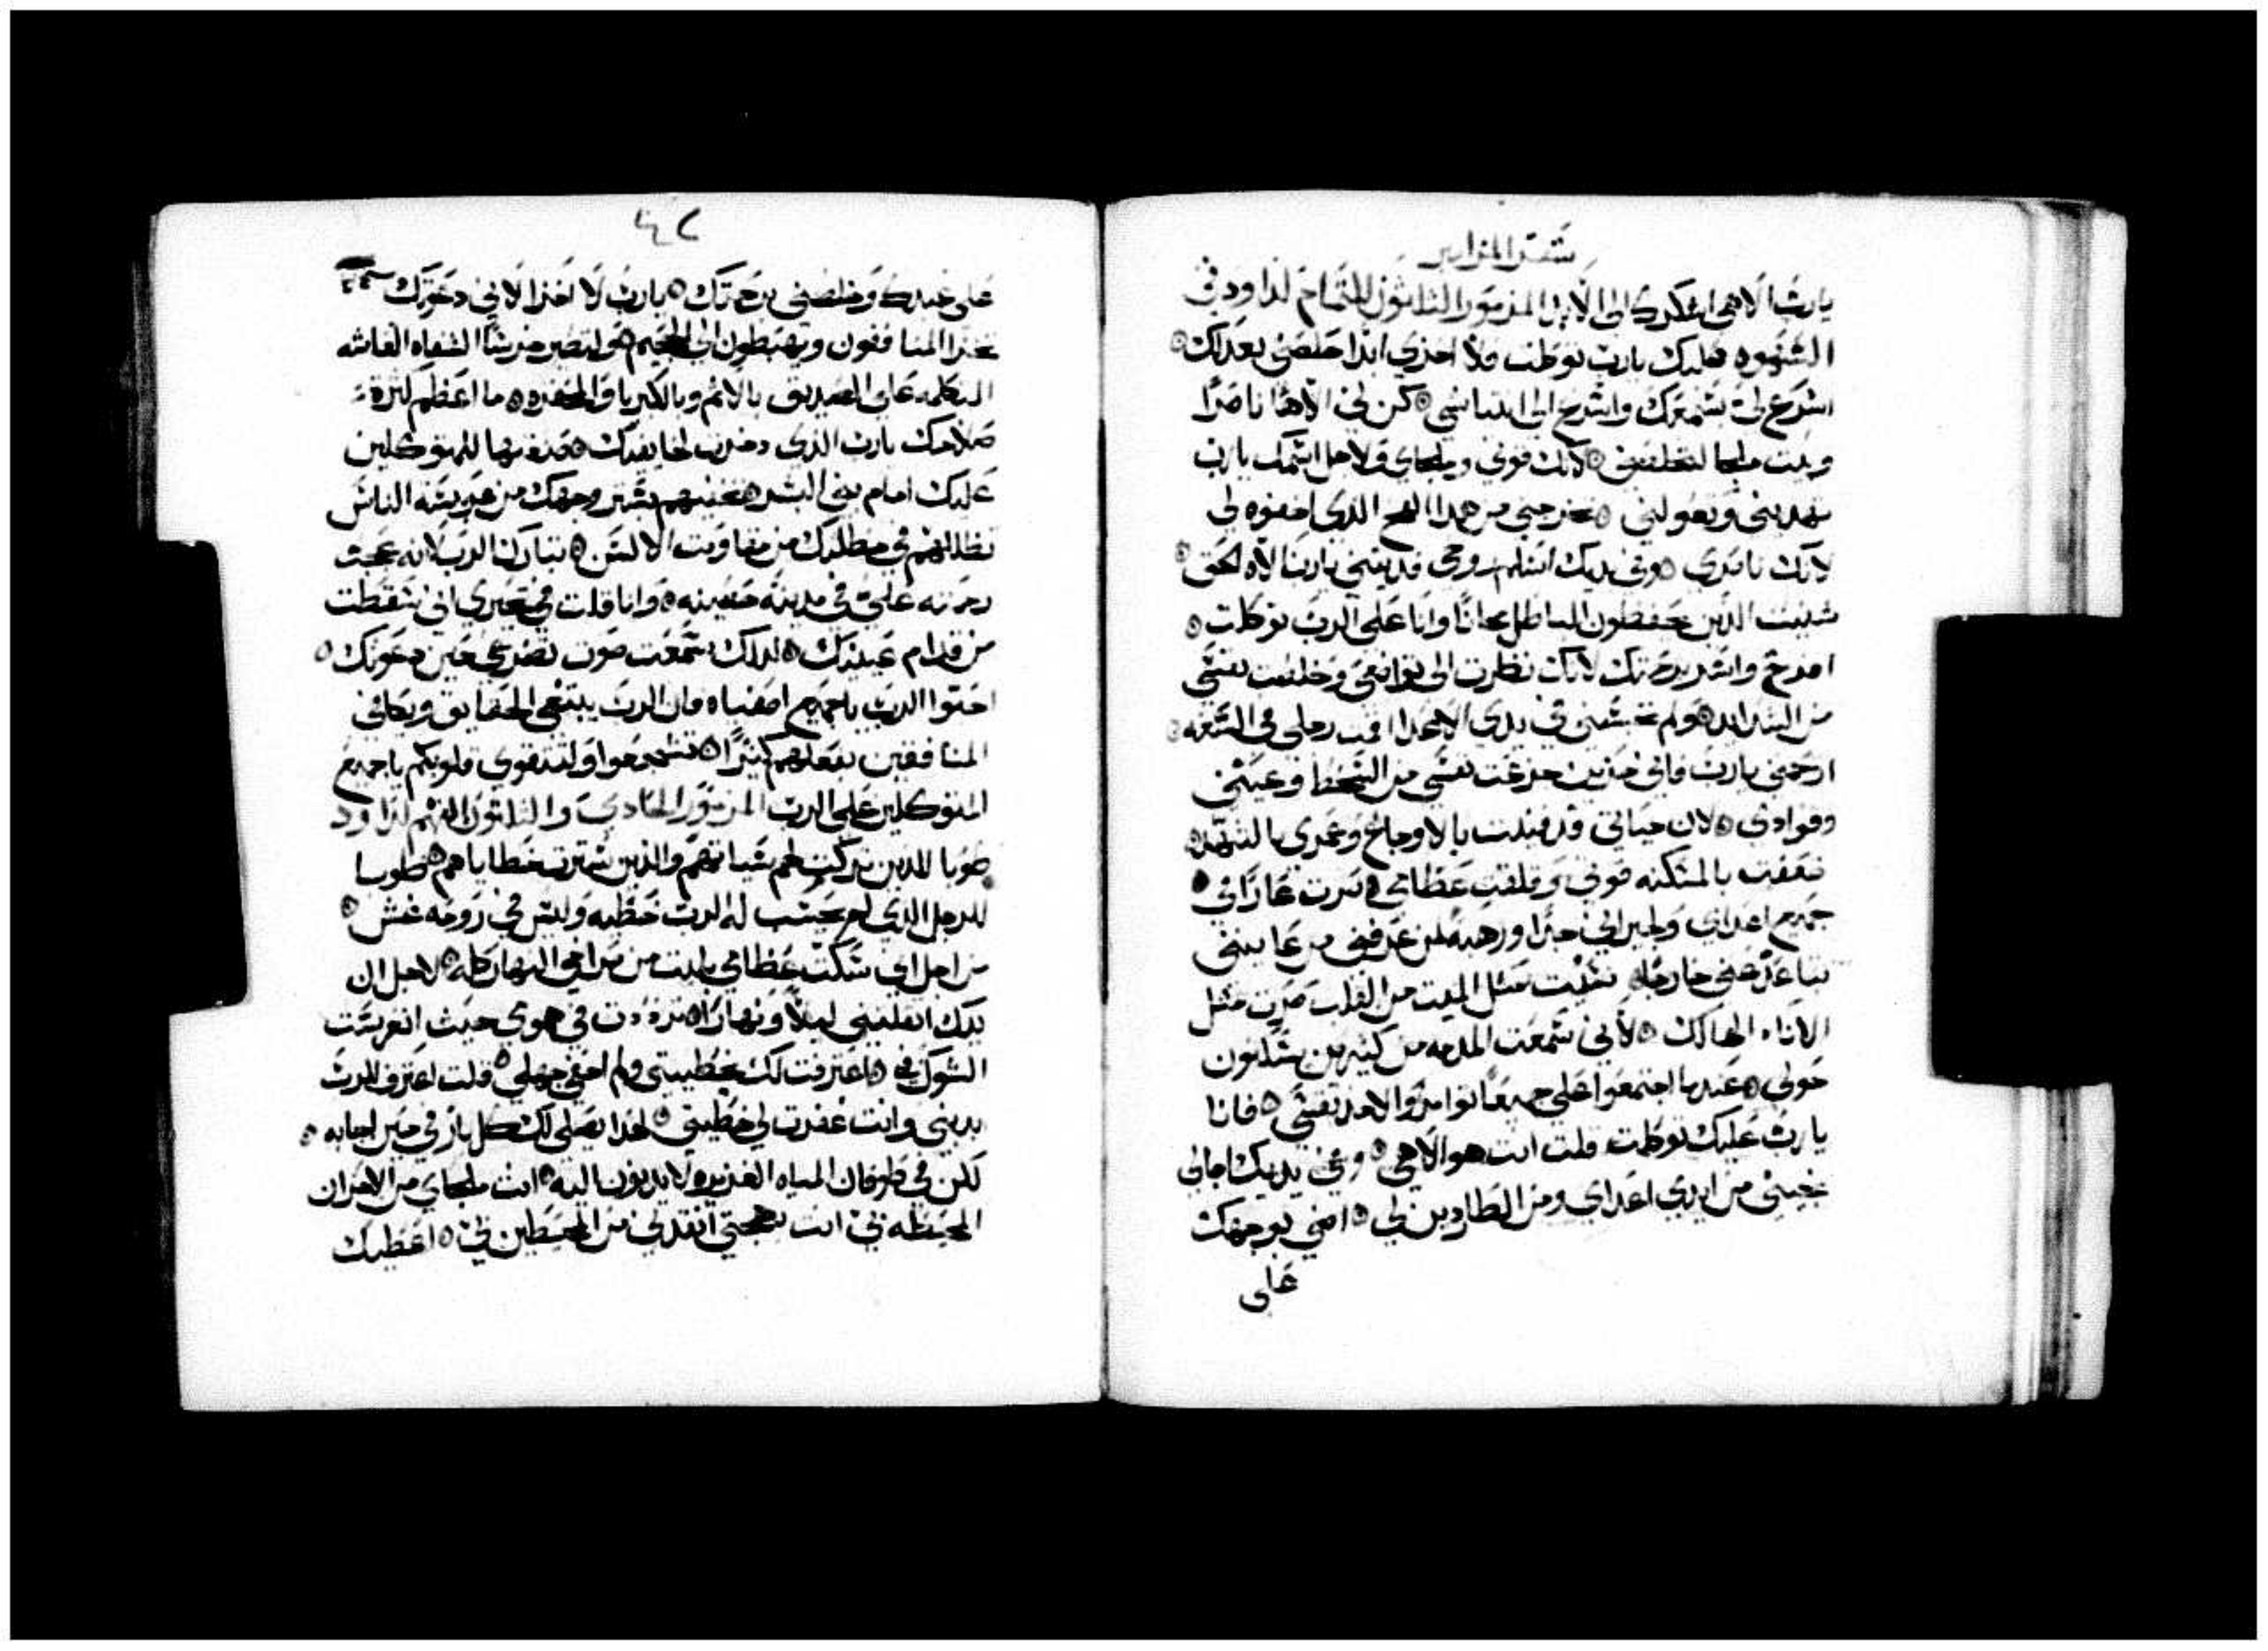 سفر المزامير
يارب الاهي اشكرك الي الابد المزمور الثلاثون للتمام لداود في
السهوه عليك يارب توكلت فلا اخزي ابدا خلصني بعدلك
اسرع لي بسمعك واسرع الي انقادي كن لي الاها ناصرا
وبيت ملجا لتخلصني لانك قوتي وملجاي ولاجل اسمك يارب
تهديني وتعولني تخرجني من هدا الفخ الدي اخفوه لي
لانك ناصري وفي يديك اسلم روحي فديتني يارب الاه الحق
شنيت الدين يحفظون الباطل مجانا وانا علي الرب توكلت
افرح واسر برحمتك لانك نظرت الي تواضعي وخلصت نفسي
من الشدايد ولم تحبسني في يدي الاعدا اقمت رجلي في السعه
ارحمني يارب فاني حزين جزعت نفسي من السخط وعيني
وفوادي لان حياتي قد فنيت بالاوجاع وعمري بالتنهد
ضعفت بالمسكنه قوتي وقلقت عظامي صرت عارا في
جميع اعداي ولجيراني جدا ورهبه لمن عرفني من عاينني
تباعد عني خارجا نسيت مثل الميت من القلب صرت مثل
الاناء الهالك لاني سمعت المدمه من كثيرين يسكنون
حولي عندما اجتمعوا علي جميعا توامروا لاخد نفسي فانا
يارب عليك توكلت قلت انت هو الاهي وفي يديك اجالي
نجيني من ايدي اعداي ومن الطاردين لي اضي بوجهك
علي
٤٢
علي عبدك وخلصني برحمتك يارب لا اخزا لاني دعوتك
تخزا المنافقون ويهبطون الي الجحيم ولتصير خرسا الشفاه الغاشه
المتكلمه علي الصديق بالاثم وبالكبريا والمحقره ما اعظم كثرة
صلاحك يارب الدي دخرت لخايفيك وصنعتها للمتوكلين
عليك امام بني البشر تخفيهم بستر وجهك من سجس الناس
تظللهم في مظلتك من مقاومة الالسن تبارك الرب لانه عجب
رحمته علي في مدينه حصينه وانا قلت في تحيري اني سقطت
من قدام عينيك لدلك سمعت صوت تضرعي حين دعوتك
احبوا الرب ياجميع اصفياه فان الرب يبتغي الحقايق ويكافي
المنافقين بفعلهم كثيرا تشجعوا ولتتقوي قلوبكم ياجميع
المتوكلين علي الرب المزمور الحادي والثلاثون الفهم لداود
طوبا للدين تركت لهم سياتهم والدين سترت خطاياهم طوبا
للرجل الدي لم يحسب له الرب خطيه وليس في روحه غش
من اجل اني سكت عظامي بليت من صراخي النهار كله لاجل ان
يدك اثقلتني ليلا ونهارا ترددت في هوي حيث انغرست
الشوك في اعترفت لك بخطيتي ولم اخفي جهلي قلت اعترف للرب
بديني وانت غفرت لي خطيتي لهدا يصلي لك كل بار في حين اجابه
لكن في طوفان المياه الغزيره لايدنون اليه انت ملجاي من الاحزان
المحيطه بي انت بهجتي انقدني من المحيطين بي اعطيك